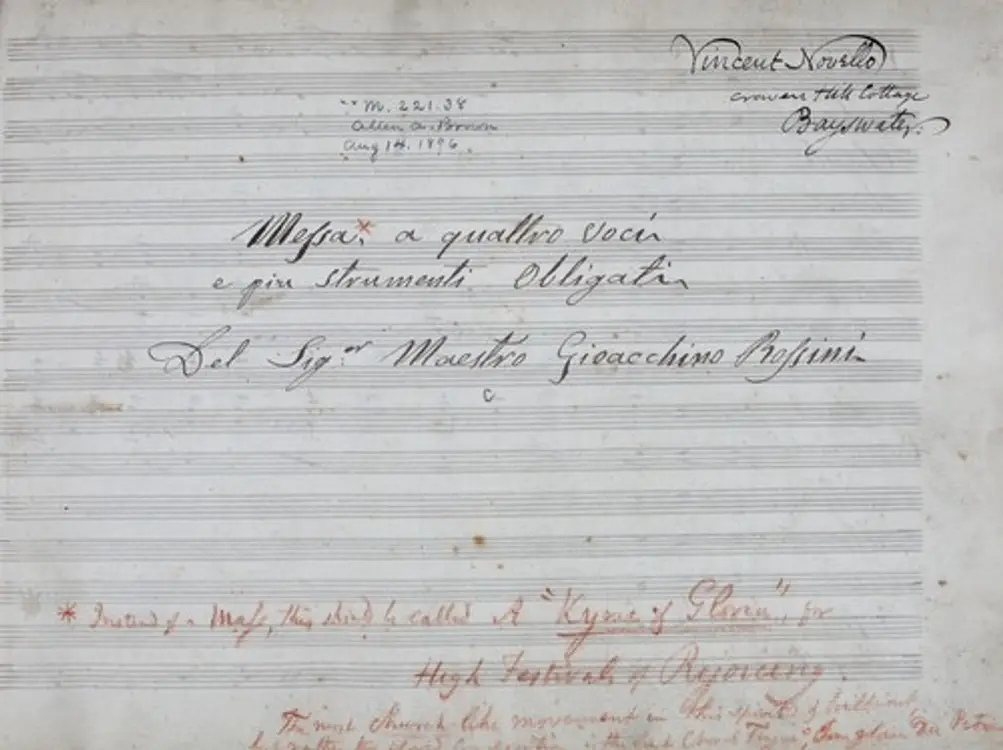 Vincent Novello
craven Hill Cottage
Bayswater.
** M. 221.38
Allen A. Brown
Aug 14. 1896.
Messa* a quattro voci
e piu strumenti Obligati
Del Sig.or Maestro Gioacchino Rossini
* Instead of a Mass, this should be called A "Kyrie & Gloria", for
High Festivals of Rejoicing.
The most Church-like movement in this spirited & brilliant,